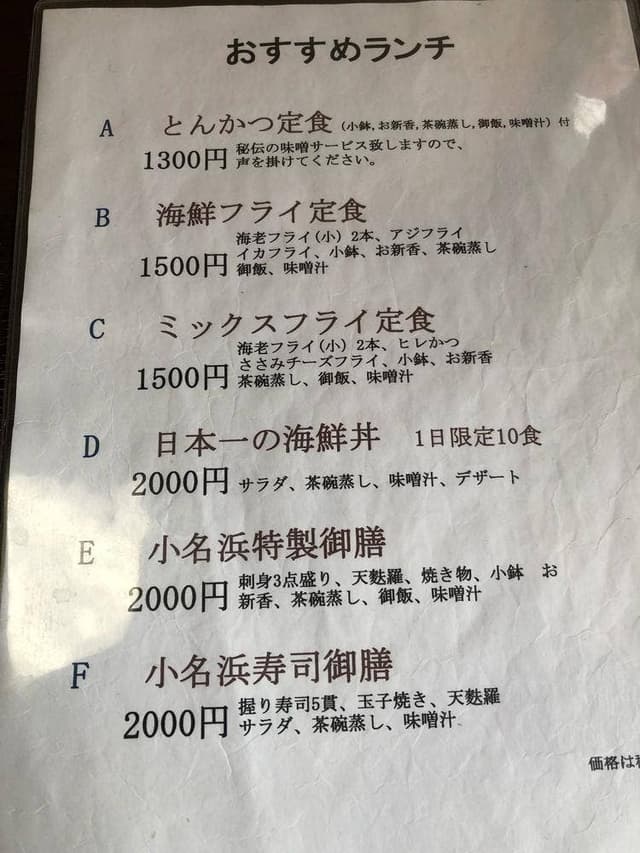 おすすめランチ
A とんかつ定食 (小鉢,お新香,茶碗蒸し,御飯,味噌汁) 付
1300円 秘伝の味噌サービス致しますので、
声を掛けてください。
B 海鮮フライ定食
海老フライ(小) 2本、アジフライ
イカフライ、小鉢、お新香、茶碗蒸し
1500円 御飯、味噌汁
C ミックスフライ定食
海老フライ(小) 2本、ヒレかつ
ささみチーズフライ、小鉢、お新香
1500円 茶碗蒸し、御飯、味噌汁
D 日本一の海鮮丼 1日限定10食
2000円 サラダ、茶碗蒸し、味噌汁、デザート
E 小名浜特製御膳
刺身3点盛り、天麩羅、焼き物、小鉢 お
2000円 新香、茶碗蒸し、御飯、味噌汁
F 小名浜寿司御膳
握り寿司5貫、玉子焼き、天麩羅
2000円 サラダ、茶碗蒸し、味噌汁
価格は